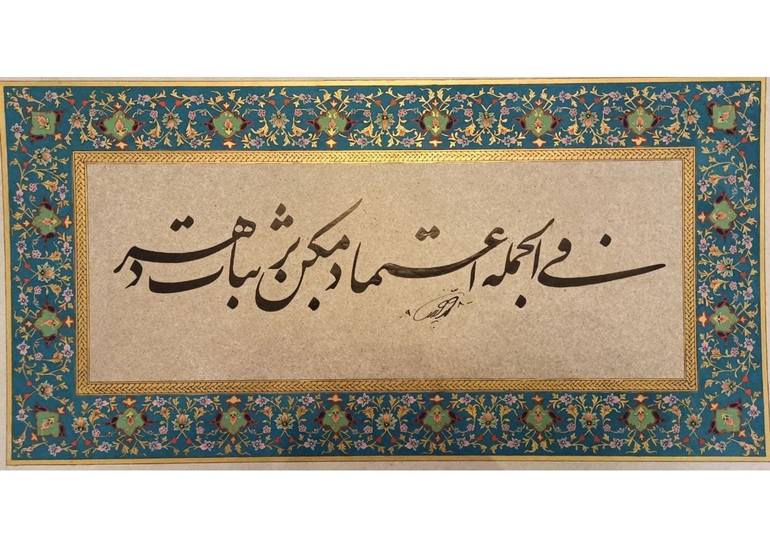 فی الجمله اعتماد مکن بر ثبات دهر